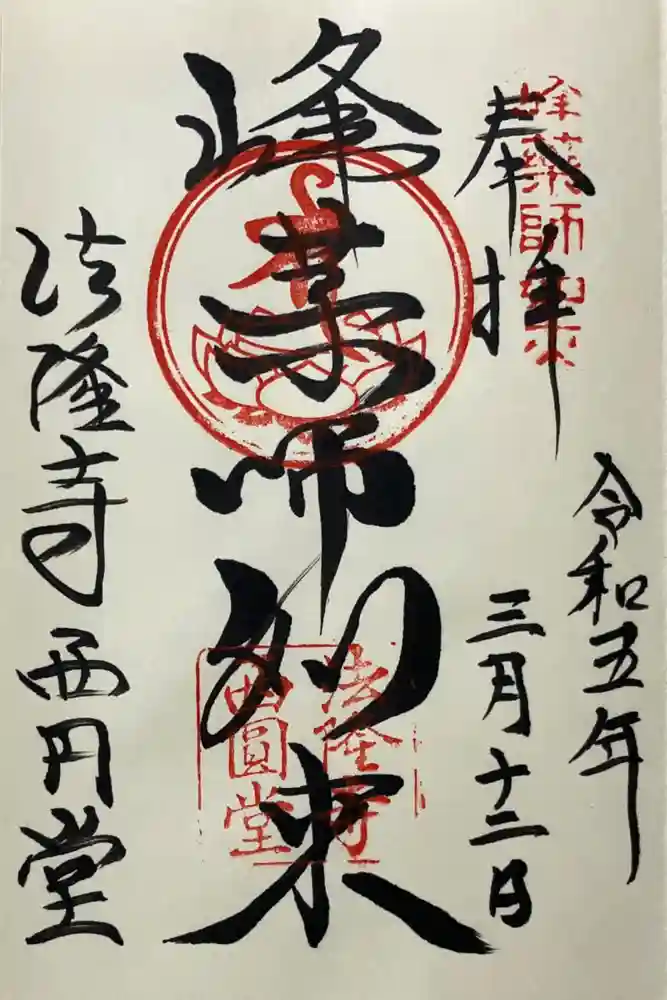 奉拝
峰薬師如来
令和五年
三月十二日
峰薬師如来
法隆寺
西圓堂
法隆寺西円堂